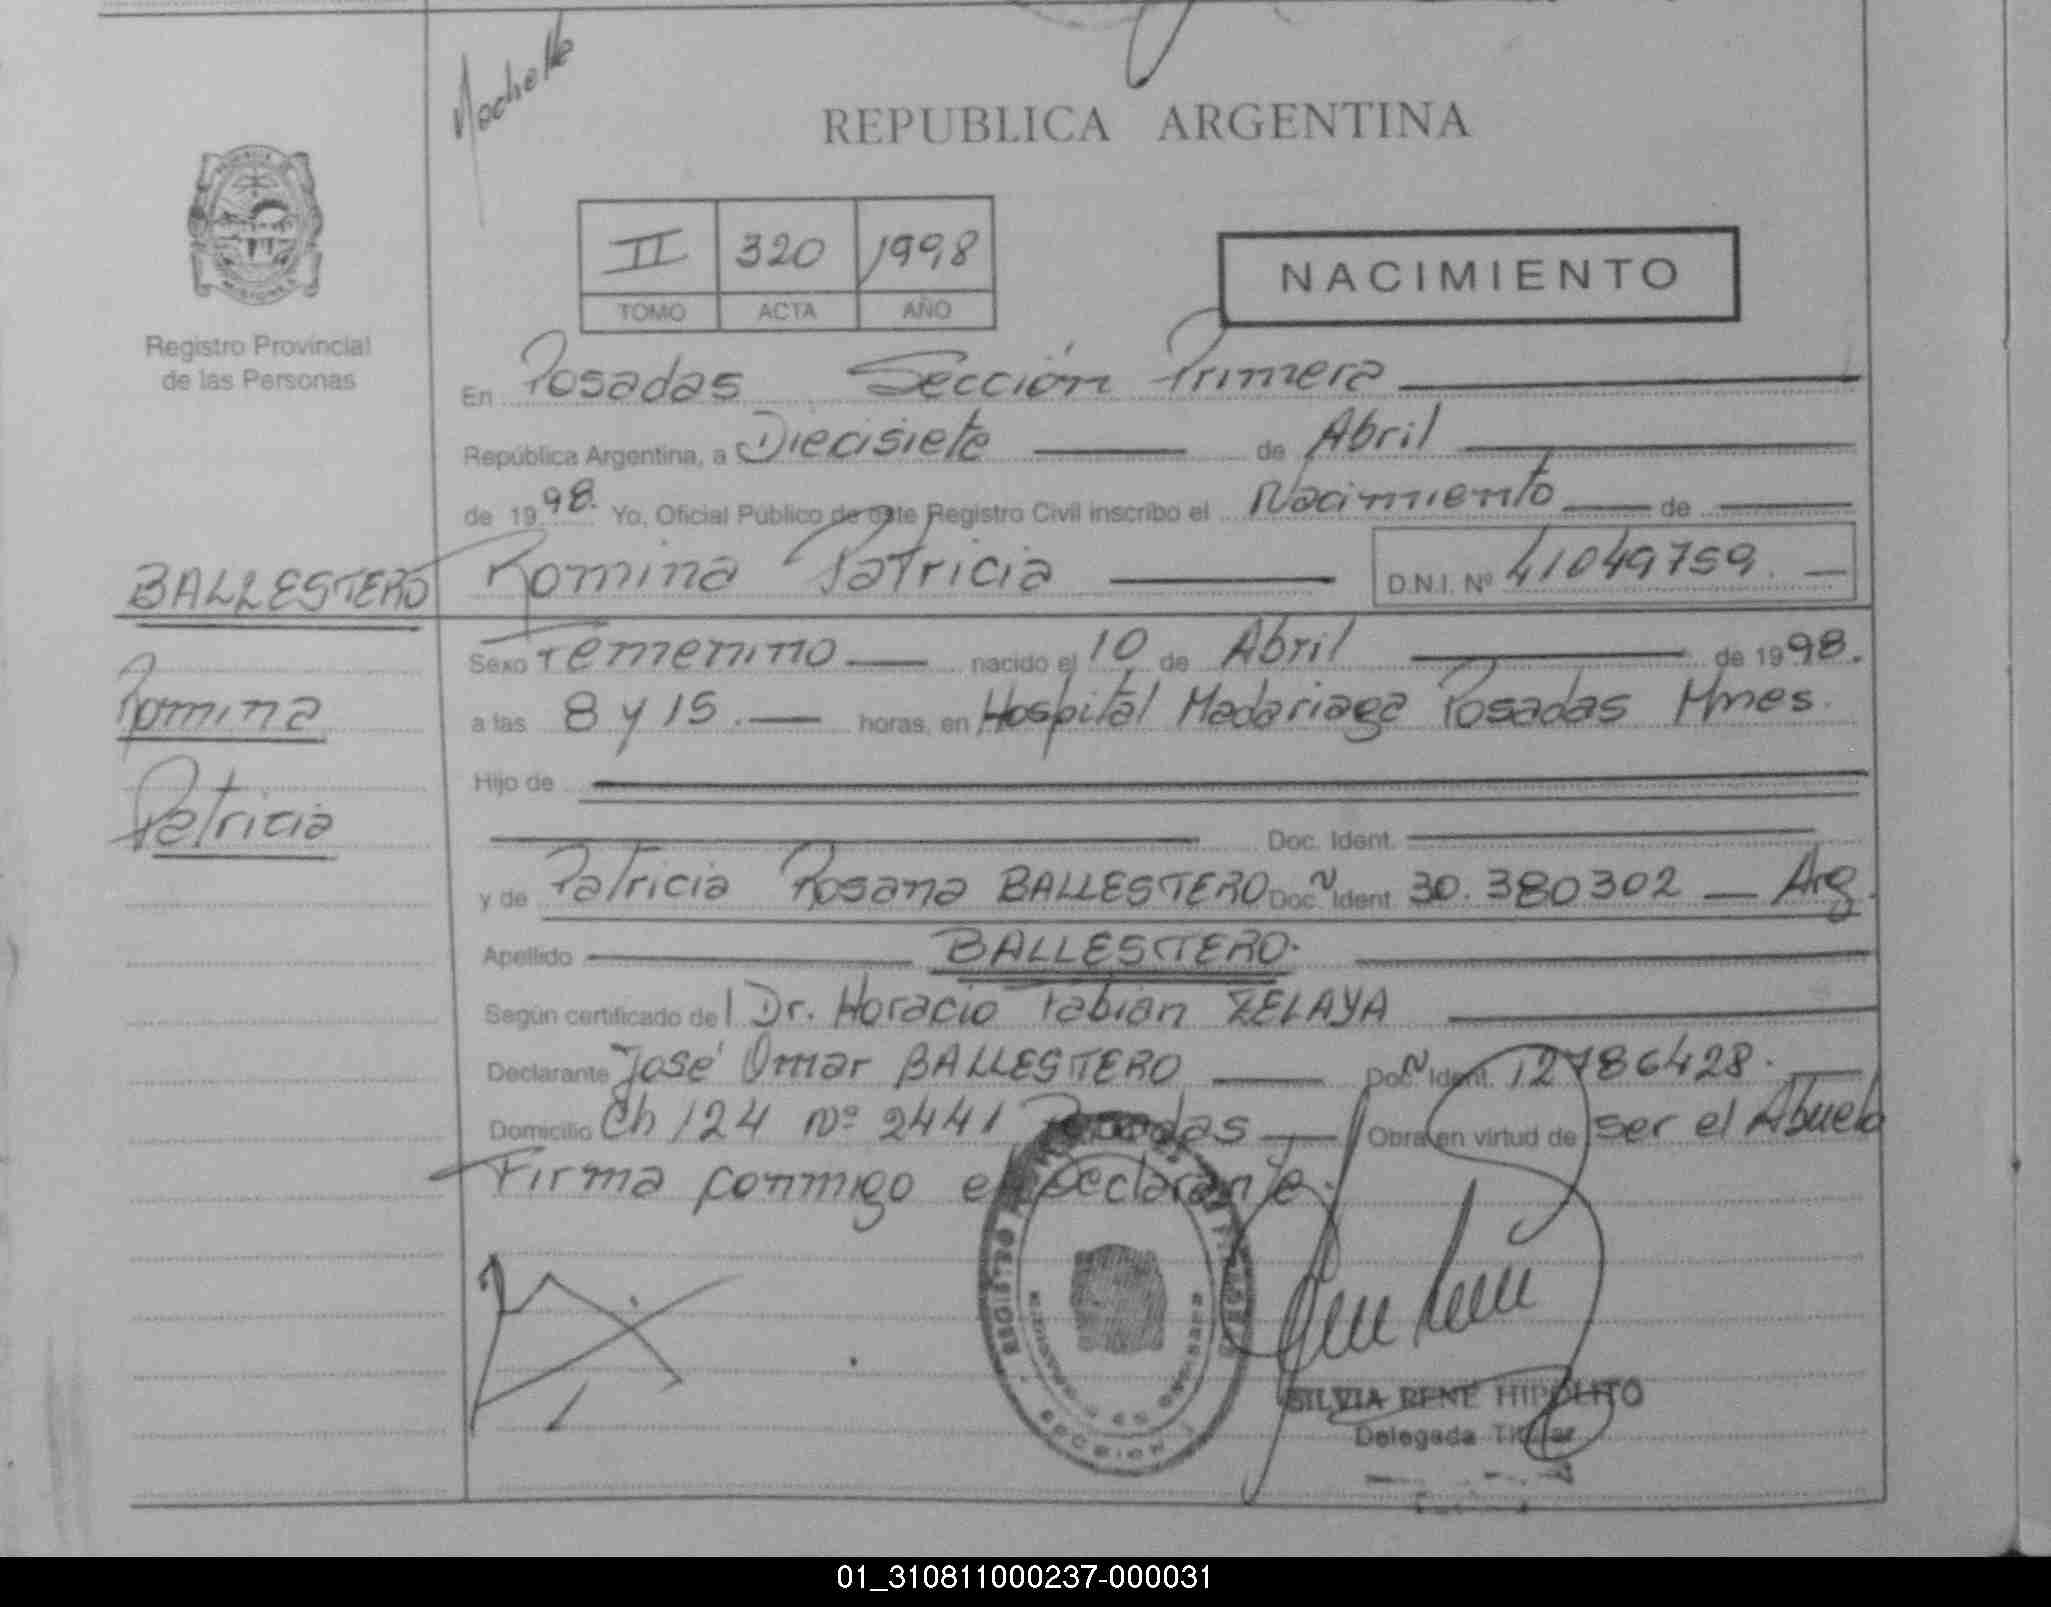 REPUBLICA ARGENTINA
II 320 1998
TOMO ACTA AÑO
NACIMIENTO
Registro Provincial
de las Personas
En Posadas Sección Primera
República Argentina, a Diecisiete de Abril
de 1998. Yo, Oficial Público de este Registro Civil inscribo el Nacimiento de
BALLESTERO
Romina
Patricia
Romina Patricia D.N.I. Nº 41049759.
Sexo Femenino nacido el 10 de Abril de 1998.
a las 8 y 15. horas, en Hospital Madariaga Posadas Mnes.
Hijo de
Doc. Ident.
y de Patricia Rosana BALLESTERO Doc. Ident. 30.380302 Arg.
Apellido BALLESTERO.
Según certificado del Dr. Horacio Fabián ZELAYA
Declarante José Omar BALLESTERO Doc. Ident. 12786428.
Domicilio Ch 124 nº 2441 Posadas Obra en virtud de ser el Abuelo
Firma conmigo el Declarante.
SILVIA RENE HIPOLITO
Delegada Titular
01_310811000237-000031